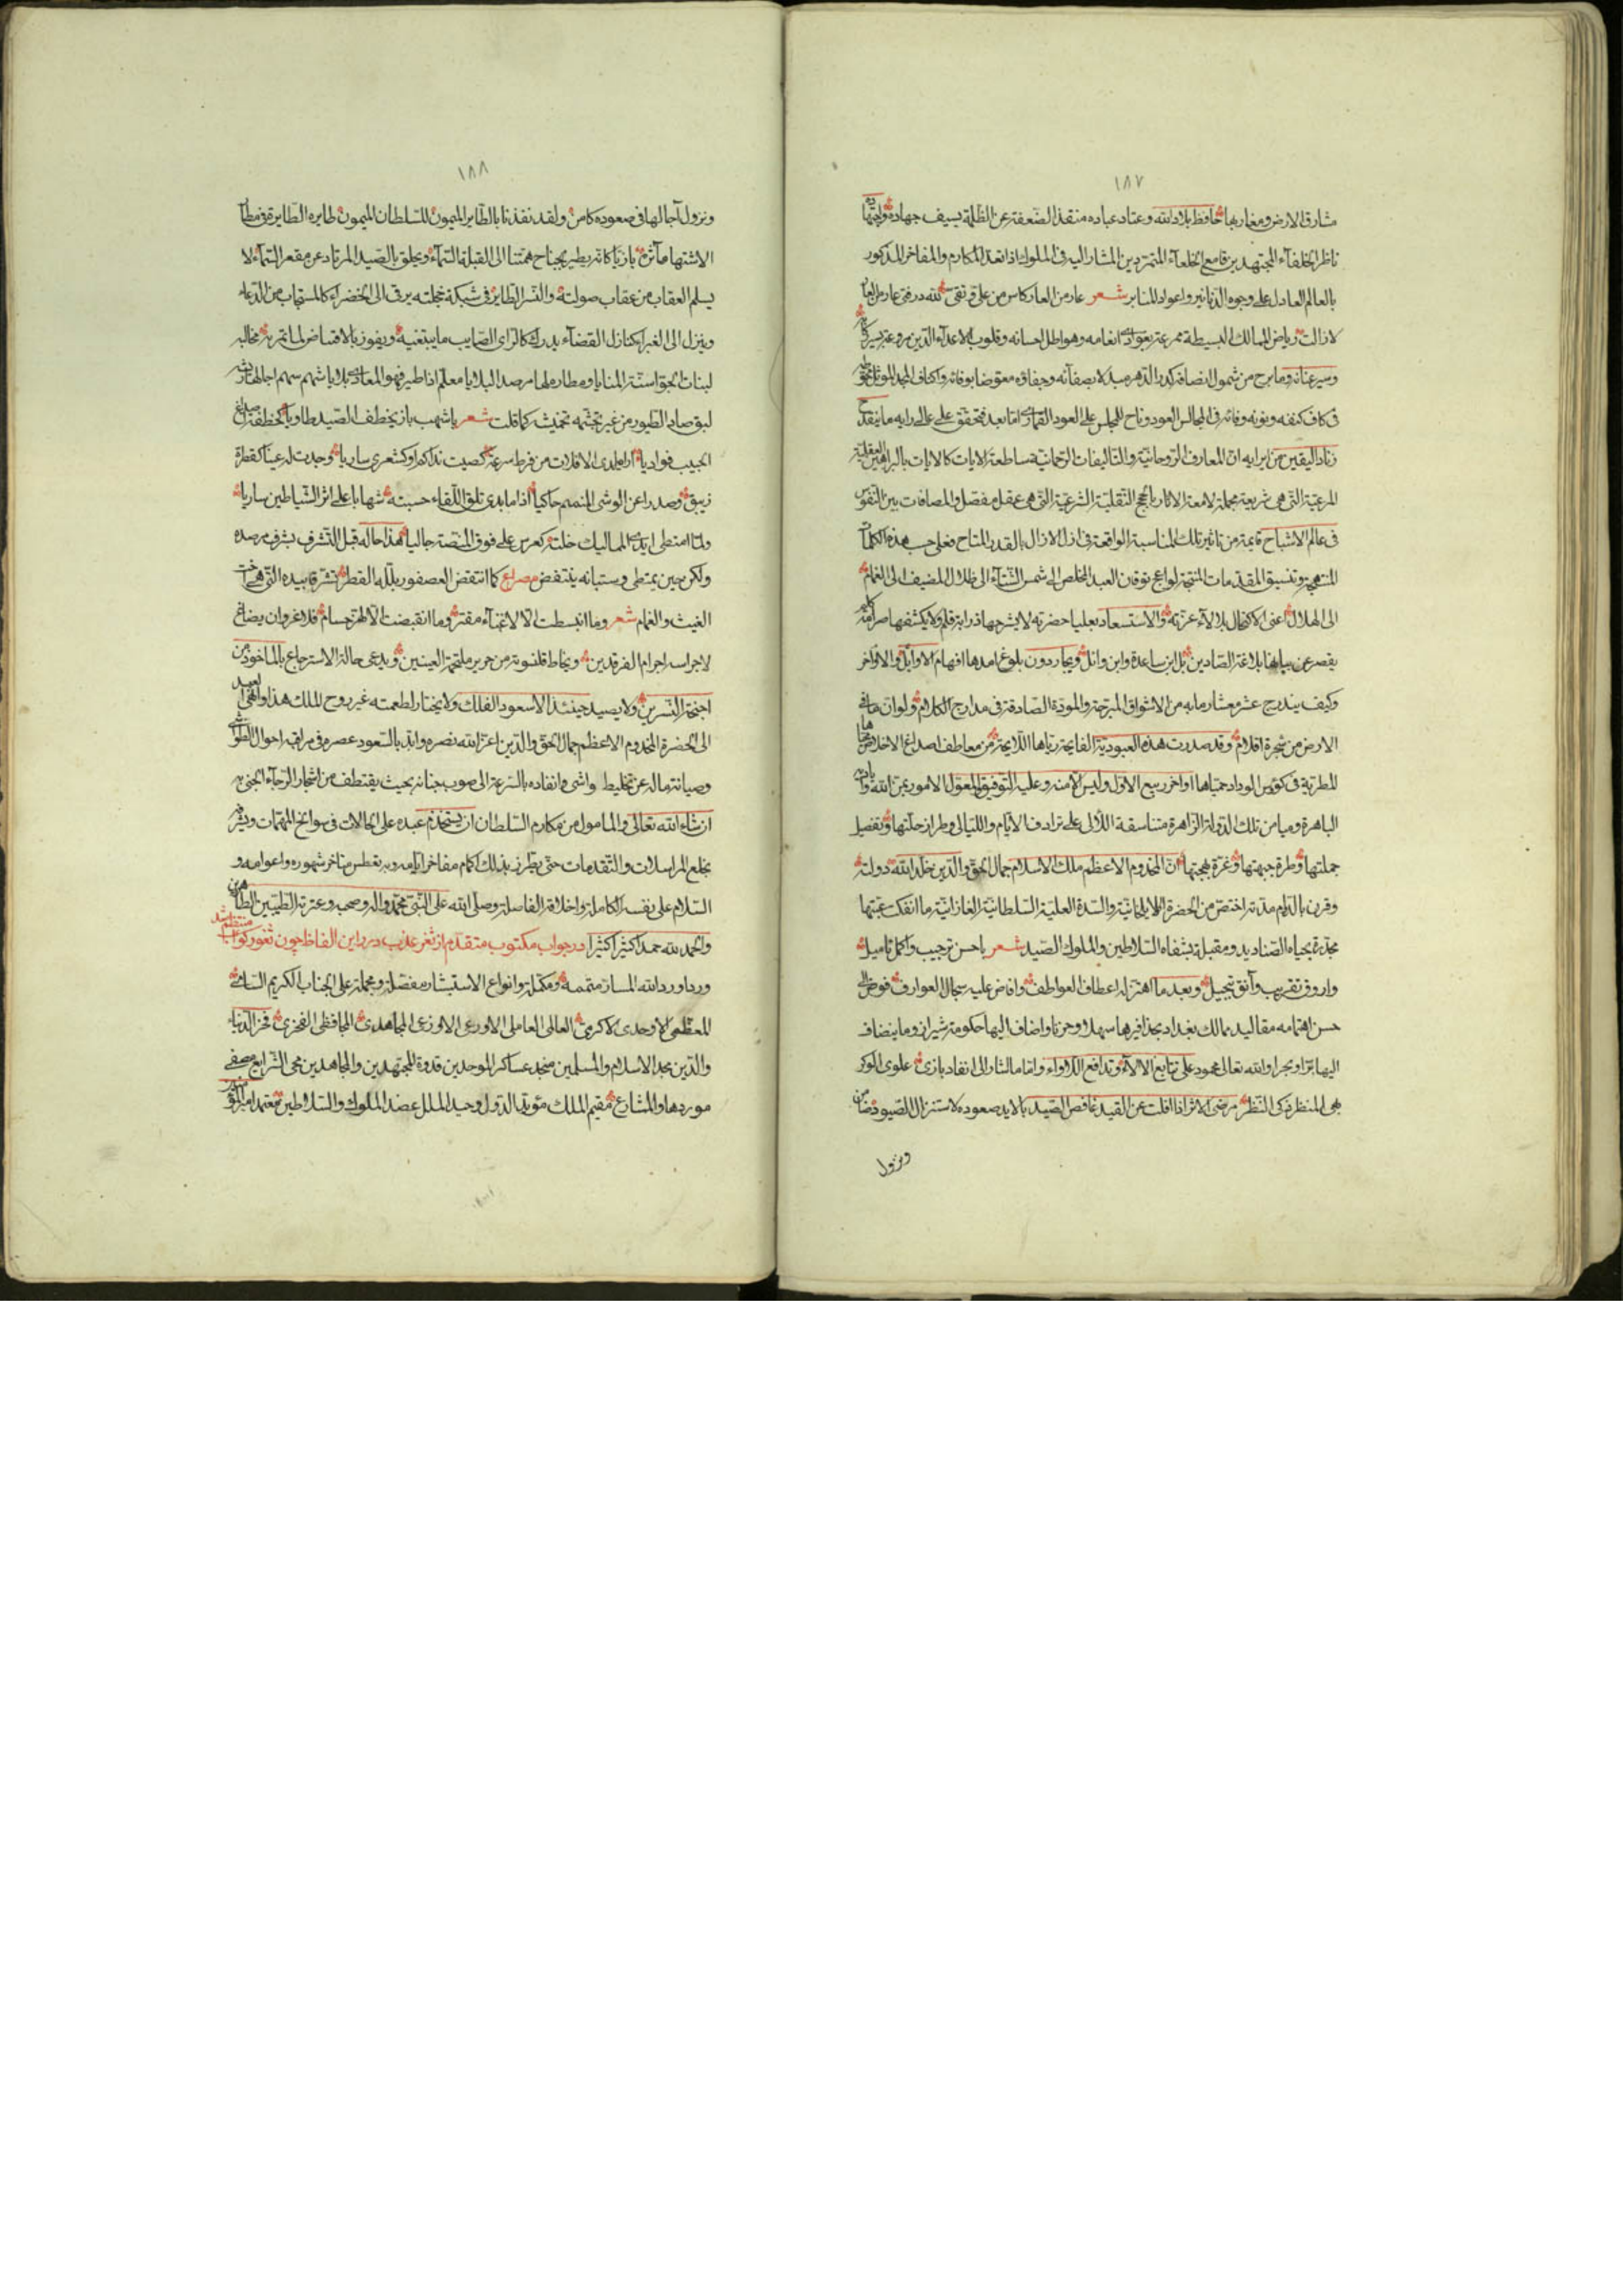 ١٨٧
مشارق الارض ومغاربها حافظ بلاد الله وعتاد عباده منقذ الضعفة عن الظلمة بسيف جهاده
ناظر الخلفآء المجتهدين قامع الخلعآء المتمردين المشار اليه فى الملوك اذا تعد المكارم والمفاخر المذكور
بالعالم العادل على وجوه الدنانير واعواد المنابر شعر عار من العار كاس من على
لا زالت رياض الممالك البسيطة ممرعة انعامه وهواطل احسانه وقلوب الاعدآء الذين
وسير عنانه وما برح من شمول انصافه كدر الدهر مبدلا بصفآئه وجفاؤه معوضا بوفائه واكناف المجد
فى كاف كنفه ونونه وفائه فى المجالس العود وناح للجلس على العود القمارى اما بعد فتحقق على عالى رايه ما ينقدح
زناد اليقين من ايرايه ان المعارف الروحانية والتاليفات الرحمانية ساطعة الايات كالايات بالبراهين العقلية
المرعية التى هى شريعة مجملة لامعة الاثار بالحجج النقلية الشرعية التى هى عقل مفصل والمصافات بين النفوس
فى عالم الاشباح قايمة من تاثير تلك المناسبة الواقعة فى ازل الازال بالقدر المتاح فعلى حسب هذه الكلمات
المنتهجة وتنسيق المقدمات المنتجة لواعج توقان العبد المخلص الى شمس الشتآء الى ظلال المضيف الى الغمام
الى الهلال اعنى الاكتحال بلالآء غرته والاستسعاد بعليا حضرته لا يشرحها ذرابة قلم ولا يكشفها صرامة
يقصر عن بيانها بلاغة الصادين بل ابن ساعدة وابن وائل ويحار دون بلوغ امدها افهام الاوايل والاواخر
وكيف يندرج عشر معشار ما به من الاشواق المبرحة والمودة الصادقة فى مدارج الكلام ولو ان ما فى
الارض من شجرة اقلام وقد صدرت هذه العبودية الفايحة رياها اللايحة من معاطف اصداغ الاخلاص
المطربة فى كؤس الوداد حمياها اواخر ربيع الاول وليس الا منه وعليه التوفيق المعول الامور بمن الله
الباهرة وميامن تلك الدولة الزاهرة متناسقة اللآلى على ترادف الايام والليالى وطراز حلتها وتفصيل
جملتها وطرة جبهتها وغرة بهجتها ان المخدوم الاعظم ملك الاسلام جمال الحق والدين خلد الله دولته
وقرن بالدوام مدته اختص من الحضرة الايلخانية والسدة العلية السلطانية الغازانية ما انفكت عتبتها
مجدرة بجباه الصناديد ومقبلة بشفاه السلاطين والملوك الصيد شعر باحسن ترحيب واكمل تاميل
واروق تقريب وآنق تبجيل وبعد ما اهتز له اعطاف العواطف وافاض عليه سجال العوارف فوض الى
حسن اهتمامه مقاليد ممالك بغداد بحذافيرها سهلا وحزنا واضاف اليها حكومة شيراز وما ينضاف
اليها برا وبحرا والله تعالى محمود على تتابع الالآء وتدافع اللأواء واما ما اشار الى انفاد بازى علوى الوكر
بهى المنظر تركى النظر مرضى الاثر اذا افلت عن القيد غافص الصيد بالايد صعوده لاستنزال الصيود
ونزول
١٨٨
ونزول آجالها فى صعوده كامن ولقد نفذنا بالطاير الميمون للسلطان الميمون طايره الطايرة فى
الاشتها مآثره بازيا كانه يطير بجناح همتنا الى القبلة السمآء ويحلق بالصيد المرتاد عن مقعر السمآء لا
يسلم العقاب من عقاب صولته والنسر الطاير فى شبكة يرقى الى الخضراء كالمستجاب من الدعاء
وينزل الى الغبراء كنازل القضآء يدرك كالراى الصايب ما يبتغيه ويفوز بالاقتناص مخالبه
لبنات الجو اسنة المنايا ومطاره لها مرصد البلايا معلم اذا طير فهو
لبق صاد الطيور من غير تجشمه كما قلت شعر باشهب باز يخطف الصيد طاويا
الحبيب فواديا لدى الافلات من فرط سرعة كصيت نداكم او كشعرى ساريا وجدت له عينا كقطرة
زيبق وصدرا عن الوشى المنمنم حاكيا اذا ما بدى تلق اللقاء حسبته شهابا على اثر الشياطين ساريا
ولما امتطى ايدى المماليك خلته كعرس على فوق المنصة جاليا هذا حاله قبل التشرف بشرف مرصده
ولكن حين يمتطى دستبانه ينتفض مصراع كما انتفض العصفور بلله القطر تشرفا بيده التى هى
الغيث والغمام شعر وما انبسطت الا لاغنآء مقتر وما انقبضت الا لهزة حسام فلا غرو ان يصاغ
لاجراسه اجرام الفرقدين ويخاط قلنسوته من حرير ملتحمة العينين ويدعى حالة الاسترجاع بالماخوذ من
اجنحة النسرين ولا يصيد حينئذ الا سعود الفلك ولا يختار لطعمته غير روح الملك هذا
الى الحضرة المخدوم الاعظم جمال الحق والدين اعز الله نصره وايد بالسعود عصره فى مراقبة احوال
وصيانة ماله عن تخليط واشى وانفاده بالسرعة الى صوب جنابه بحيث يقتطف من اشجار الرجآء الجنى
ان شاء الله تعالى والمامول من مكارم السلطان ان يستخدم عبده على الحالات فى سوانح المهمات ويشرفه
بخلع المراسلات والتقدمات حتى يطرز بذلك اكمام مفاخر ايامه وبه يعطس مناخر شهوره واعوامه و
السلام على نفسه الكاملة واخلاقه الفاضلة وصلى الله على النبى محمد واله وصحبه وعترته الطيبين الطاهرين
والحمد لله حمدا كثيرا كثيرا در جواب مكتوب متقدم از ثغر عذب درر اين الفاظ چون ثغور كواكب منتظم شد
ورد اورد الله المسار متممة ومكملة وانواع الاستبشار مفصلة ومجملة على الجناب الكريم السامى
المعظمى الاوحدى الاكرمى العالى العاملى الاورعى الاروعى المجاهدى المحافظى الفخرى فخر الدنياء
والدين مجد الاسلام والمسلمين منجد عساكر الموحدين قدوة المجتهدين والمجاهدين محى الشرايع مصفى
موردها والمشارع مقيم الملك مؤيد الدول وحيد الملل عضد الملوك والسلاطين معتمد